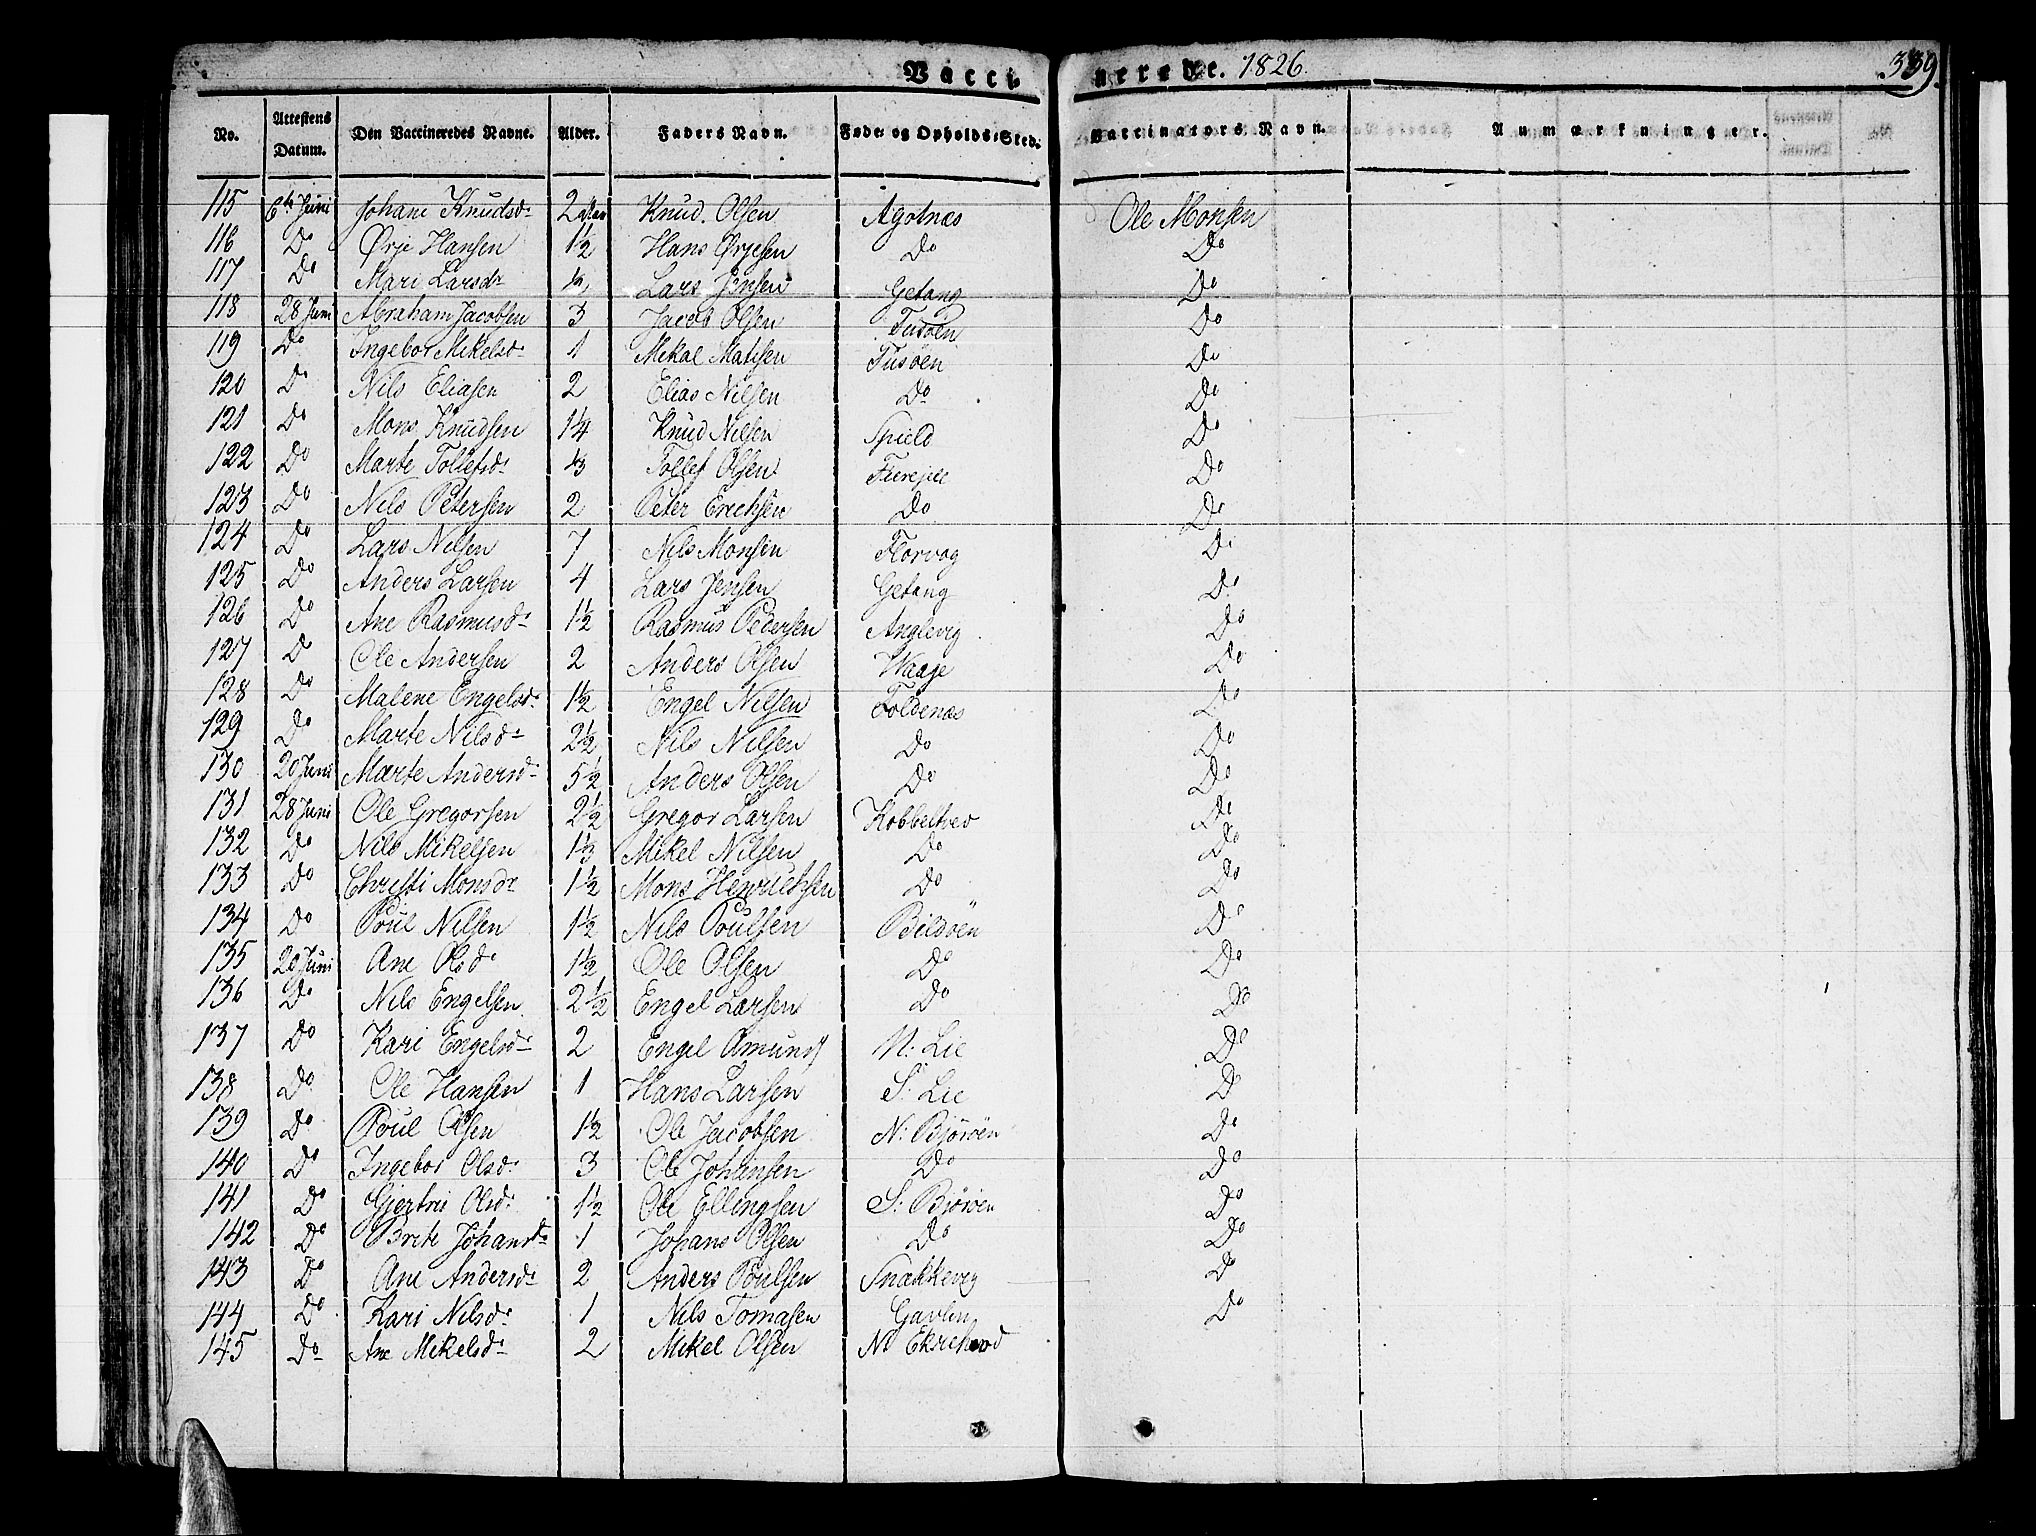 Vaccinerede. 1826. 339.
No. Attestens Datum. Den Vaccineredes Navne. Alder. Faders Navn. Føde- og Opholds-Sted. Vaccinators Navn. Anmærkninger.
115 6te Juni Johane Knudsdr 2 Knud. Olsen Agotnæs Ole Monsen
116 Do Ørje Hansen 1½ Hans Ørjesen Do Do
117 Do Mari Larsdr Lars Jensen Getang Do
118 28 Juni Abraham Jacobsen 3 Jacob Olsen Tusöen Do
119 Do Ingebor Mikelsdr 1 Mikal Matisen Tusöen Do
120 Do Nils Eliasen 2 Elias Nilsen Do Do
121 Do Mons Knudsen 1¼ Knud Nilsen Spield Do
122 Do Marte Tollefsdr Tollef Olsen Do
123 Do Nils Petersen 2 Peter Erichsen Do Do
124 Do Lars Nilsen 7 Nils Monsen Florvog Do
125 Do Anders Larsen 4 Lars Jensen Getang Do
126 Do Ane Rasmusdr 1½ Rasmus Pedersen Anglevig Do
127 Do Ole Andersen 2 Anders Olsen Waage Do
128 Do Malene Engelsdr 1½ Engel Nilsen Foldenæs Do
129 Do Marte Nilsdr 2½ Nils Nilsen Do Do
130 20 Juni Marte Andersdr 5½ Anders Olsen Do Do
131 28 Juni Ole Gregorsen 2½ Gregor Larsen Kobbeltved Do
132 Do Nils Mikelsen 1⅓ Mikel Nilsen Do Do
133 Do Christi Monsdr 1½ Mons Henrichsen Do Do
134 Do Poul Nilsen 1½ Nils Poulsen Bildöen Do
135 20 Juni Ane Olsdr 1½ Ole Olsen Do Do
136 Do Nils Engelsen 2½ Engel Larsen Do Do
137 Do Kari Engelsdr 2 Engel Amunds N: Lie Do
138 Do Ole Hansen 1 Hans Larsen S: Lie Do
139 Do Poul Olsen 1½ Ole Jacobsen N: Björöen Do
140 Do Ingebor Olsdr 3 Ole Johansen Do Do
141 Do Gjertru Olsdr 1½ Ole Ellingsen S: Björöen Do
142 Do Brite Johansdr 1 Johans Olsen Do Do
143 Do Ane Andersdr 2 Anders Poulsen Snekkevig Do
144 Do Kari Nilsdr 1 Nils Tomasen Gavlen Do
145 Do Ane Mikelsdr 2 Mikel Olsen